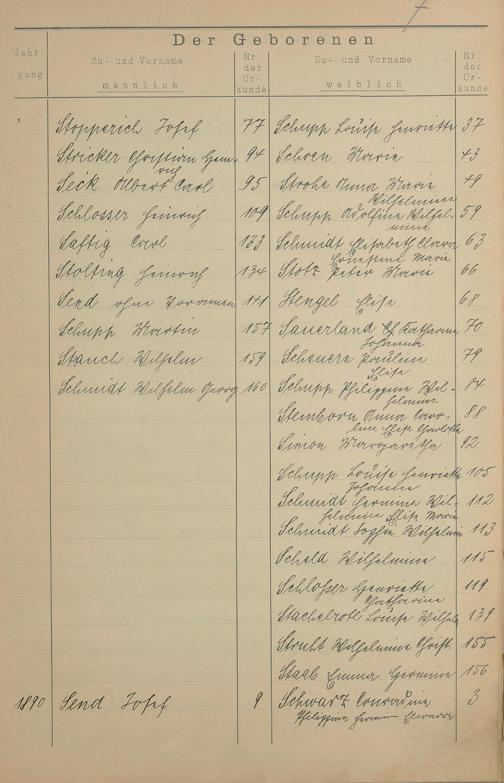 7
Der Geborenen
Jahr-
gang
Zu- und Vorname
männlich
Nr.
der
Ur-
kunde
Zu- und Vorname
weiblich
Nr.
der
Ur-
kunde
Stopperich Josef 77 Schupp Louise Henriette 37
Stricker Christian Hein- 94 Schoen Marie 43
rich
Seck Albert Carl 95 Strohe Anna Marie 49
Wilhelmine
Schlosser Heinrich 109 Schupp Adolfine Wilhel- 59
mine
Saftig Carl 133 Schmidt Elisabeth Clara 63
Ernestine Marie
Stolting Heinrich 134 Stotz Peter Marie 66
Send ohne Vornamen 141 Stengel Elise 68
Schupp Martin 157 Sauerland Katharina 70
Johanna
Stauch Wilhelm 159 Scheuern Pauline 79
Elise
Schmidt Wilhelm Georg 160 Schupp Philippine Wil- 84
helmine
Stemborn Anna Caro- 88
line Elise Charlotte
Simon Margaretha 92
Schupp Louise Henriette 105
Johanna
Schmidt Hermine Wil- 112
helmine Elise Marie
Schmidt Sophie Wilhelmin 113
Scheld Wilhelmine 115
Schlosser Henriette 119
Catharine
Stachelroth Louise Wilhel 139
Struht Wilhelmine Christ. 155
Staab Emma Hermine 156
1890 Send Josef 9 Schwarz Conradine 3
Philippina